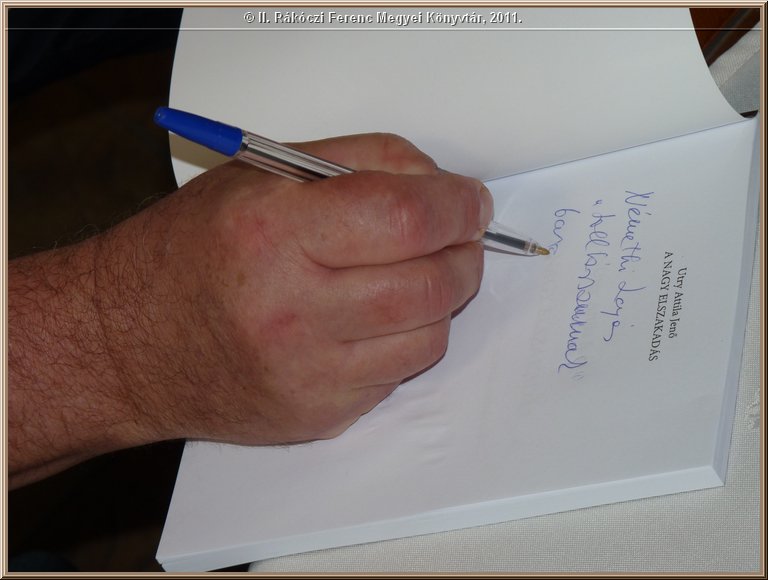 © II. Rákóczi Ferenc Megyei Könyvtár, 2011.
Utry Attila Jenő
A NAGY ELSZAKADÁS
Némethi Lajos
bará